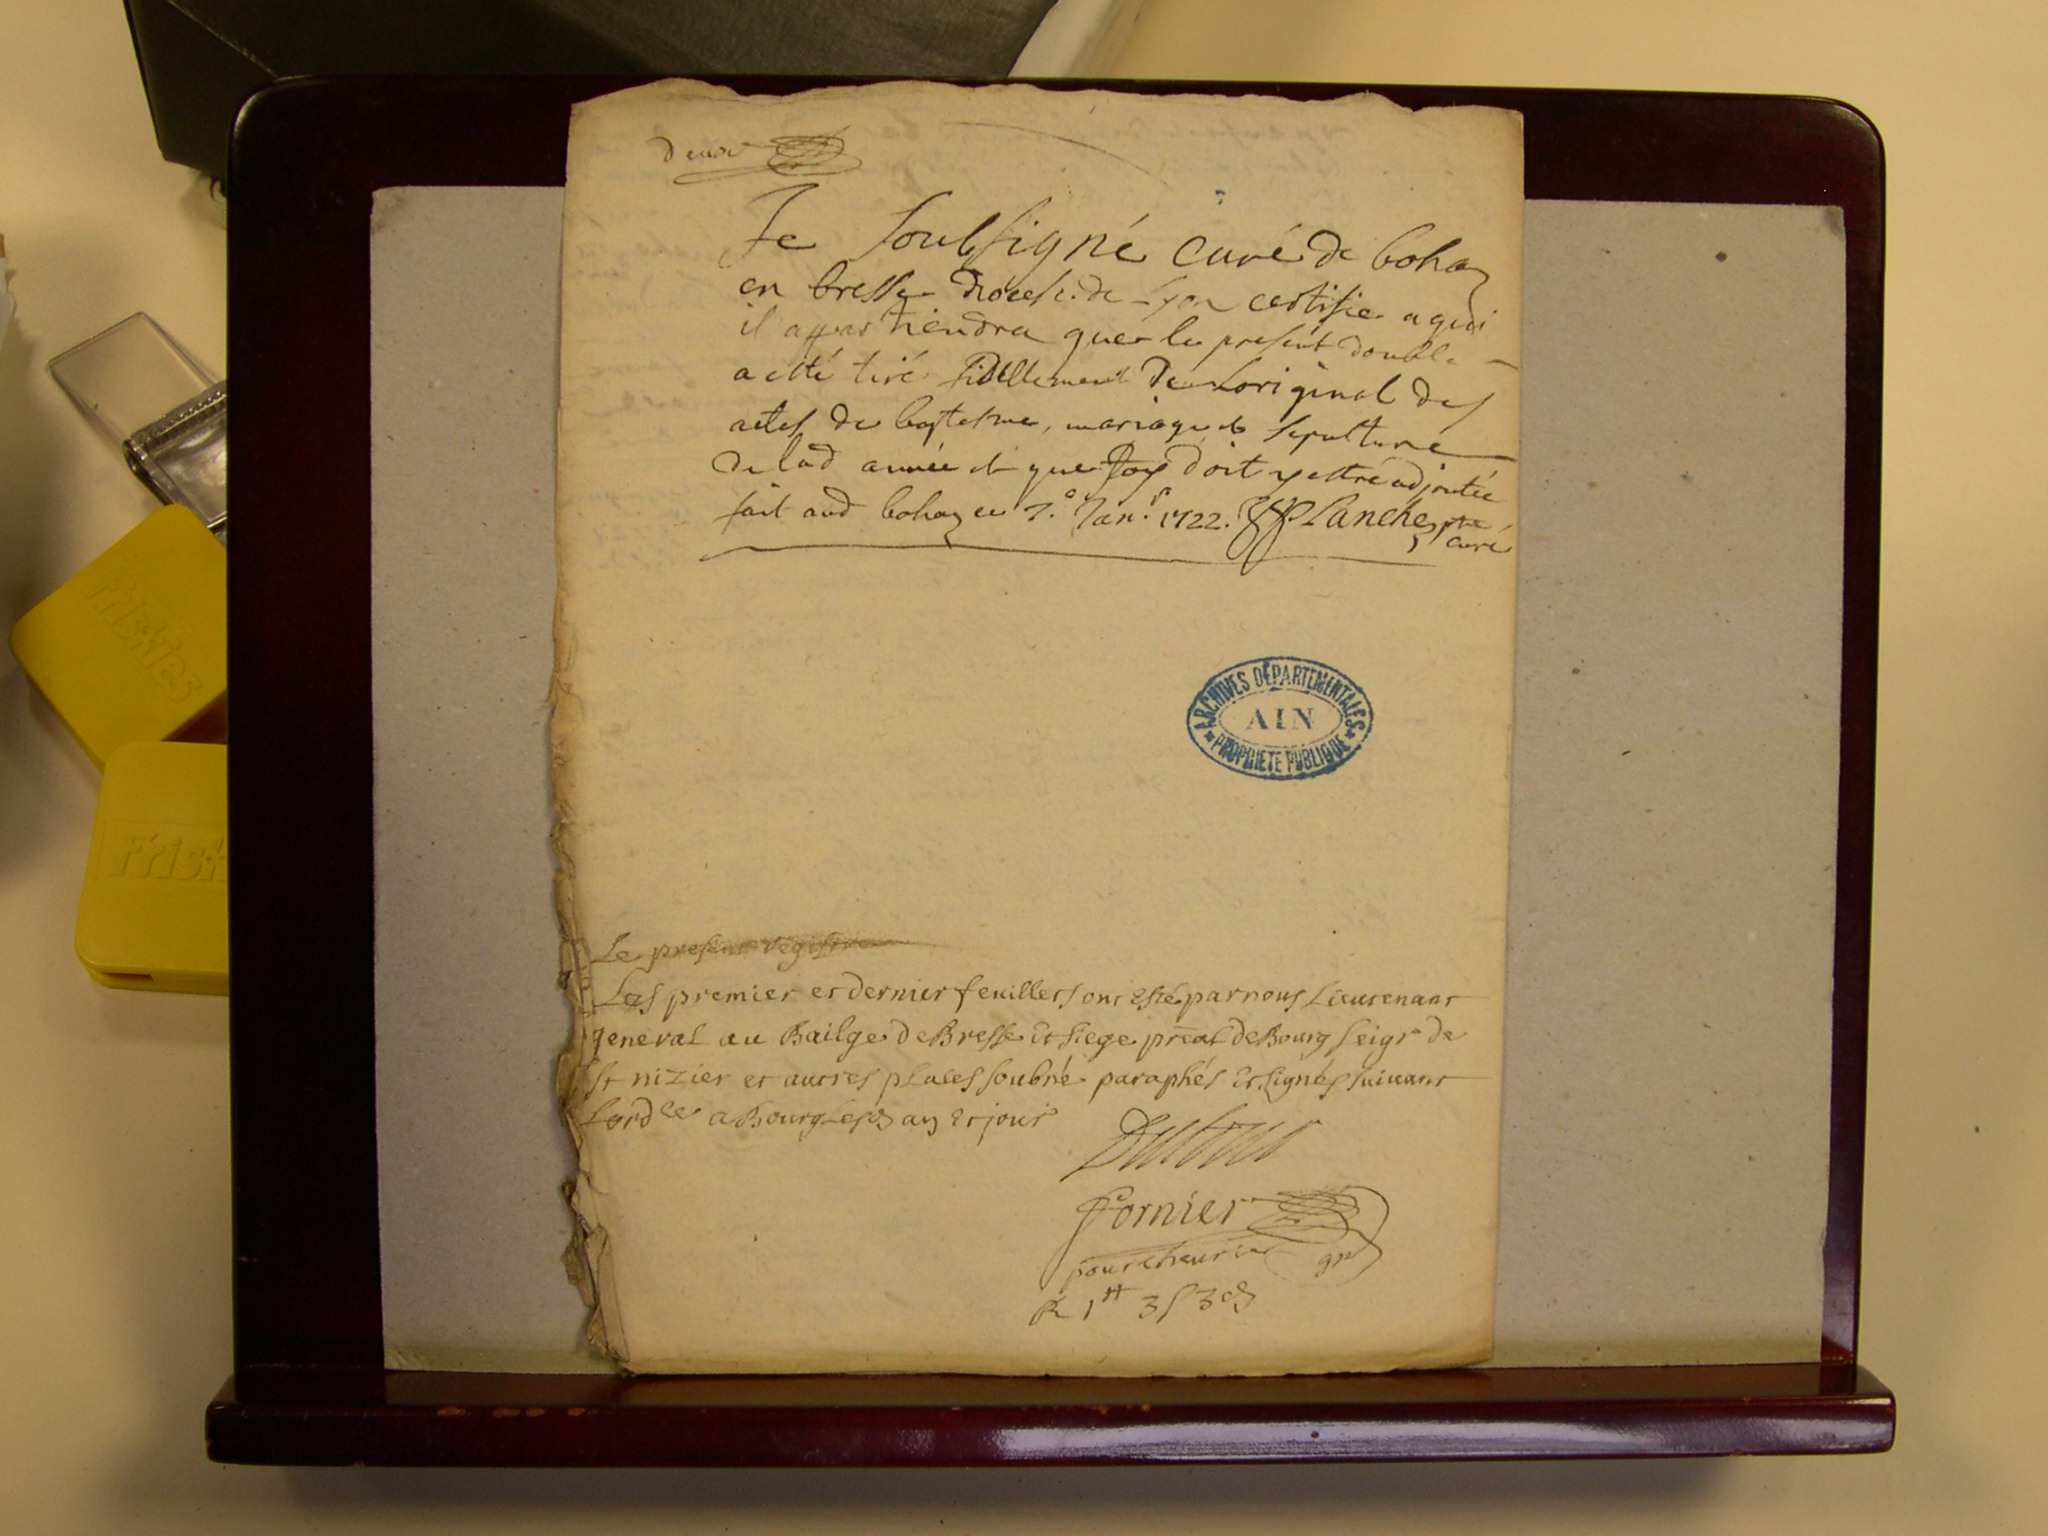 Je soubsigné curé de bohaz
en bresse diocese de Lyon certifie a qui
il appartiendra que le present double
a esté tiré fidellement de Loriginal des
actes de baptesme, mariage et sepulture
de lad année et que foy doit y estre adjoutée
fait aud bohaz ce 7.e Janr. 1722. Planche ptre
curé
ARCHIVES DÉPARTEMENTALES
AIN
PROPRIÉTÉ PUBLIQUE
Le present registre
Les premier et dernier feuillets ont esté par nous Lieutenant
general au Bailge de Bresse et siege preal de Bourg seigr de
st nizier et autres places soubné paraphés et signés suivant
Lordce a Bourg Lesd an et jour
Fornier
pour
R 1tt 3s 3d
friskies
frisk